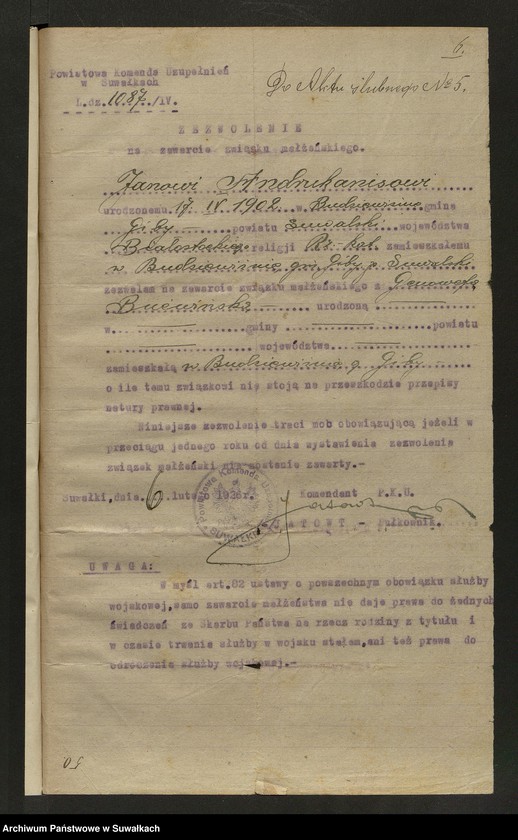 6.
Powiatowa Komenda Uzupełnień
w Suwałkach
Do Aktu ślubnego № 5.
L.dz. 1087./IV.
ZEZWOLENIE
na zawarcie związku małżeńskiego.
Janowi Andrukanisowi
urodzonemu 17 IV 1908 w Budziewiźnie gmina
Giby powiatu Suwalski województwa
Białostockiego religii Rz-kat zamieszkałemu
w Budziewiźnie gm Giby p Suwalski
zezwalam na zawarcie związku małżeńskiego z Genowefą
urodzoną
w gminy powiatu
województwa
zamieszkałą w Budziewiźnie g. Giby
o ile temu związkowi nie stoją na przeszkodzie przepisy
natury prawnej.
Niniejsze zezwolenie traci moc obowiązującą jeżeli w
przeciągu jednego roku od dnia wystawienia zezwolenia
związek małżeński nie zostanie zawarty.-
Suwałki, dnia 6 lutego 1936r. Komendant P.K.U.
Powiatowa Komenda Uzupełnień
SUWAŁKI
JATOWT - Pułkownik.
UWAGA:
W myśl art. 82 ustawy o powszechnym obowiązku służby
wojskowej, samo zawarcie małżeństwa nie daje prawa do żadnych
świadczeń ze Skarbu Państwa na rzecz rodziny z tytułu i
w czasie trwania służby w wojsku stałem, ani też prawa do
odroczenia służby wojskowej.-
50
Archiwum Państwowe w Suwałkach